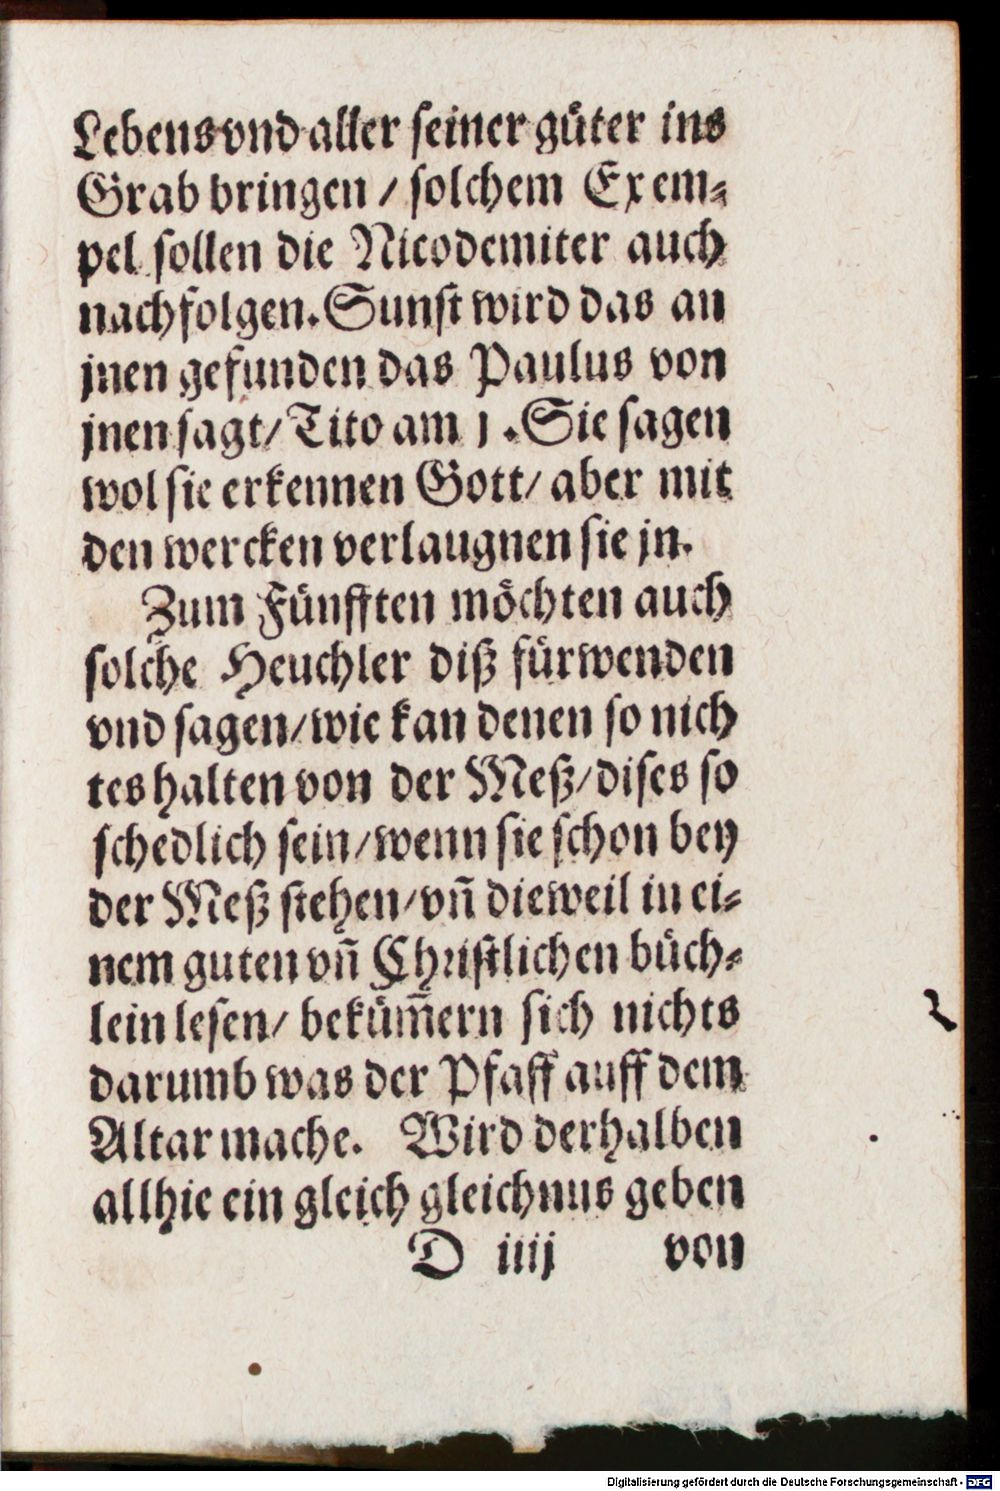 Lebens vnd aller seiner güter ins
Grab bringen / solchem Exem⸗
pel sollen die Nicodemiter auch
nachfolgen. Sunst wird das an
jnen gefunden das Paulus von
jnen sagt / Tito am 1. Sie sagen
wol sie erkennen Gott / aber mit
den wercken verlaugnen sie jn.
Zum Fünfften möchten auch
solche Heuchler diß fürwenden
vnd sagen / wie kan denen so nich
tes halten von der Meß / dises so
schedlich sein / wenn sie schon bey
der Meß stehen / vñ dieweil in ei⸗
nem guten vñ Christlichen büch⸗
lein lesen / bekům̃ern sich nichts
darumb was der Pfaff auff dem
Altar mache. Wird derhalben
allhie ein gleich gleichnus geben
D iiij von
Digitalisierung gefördert durch die Deutsche Forschungsgemeinschaft - DFG